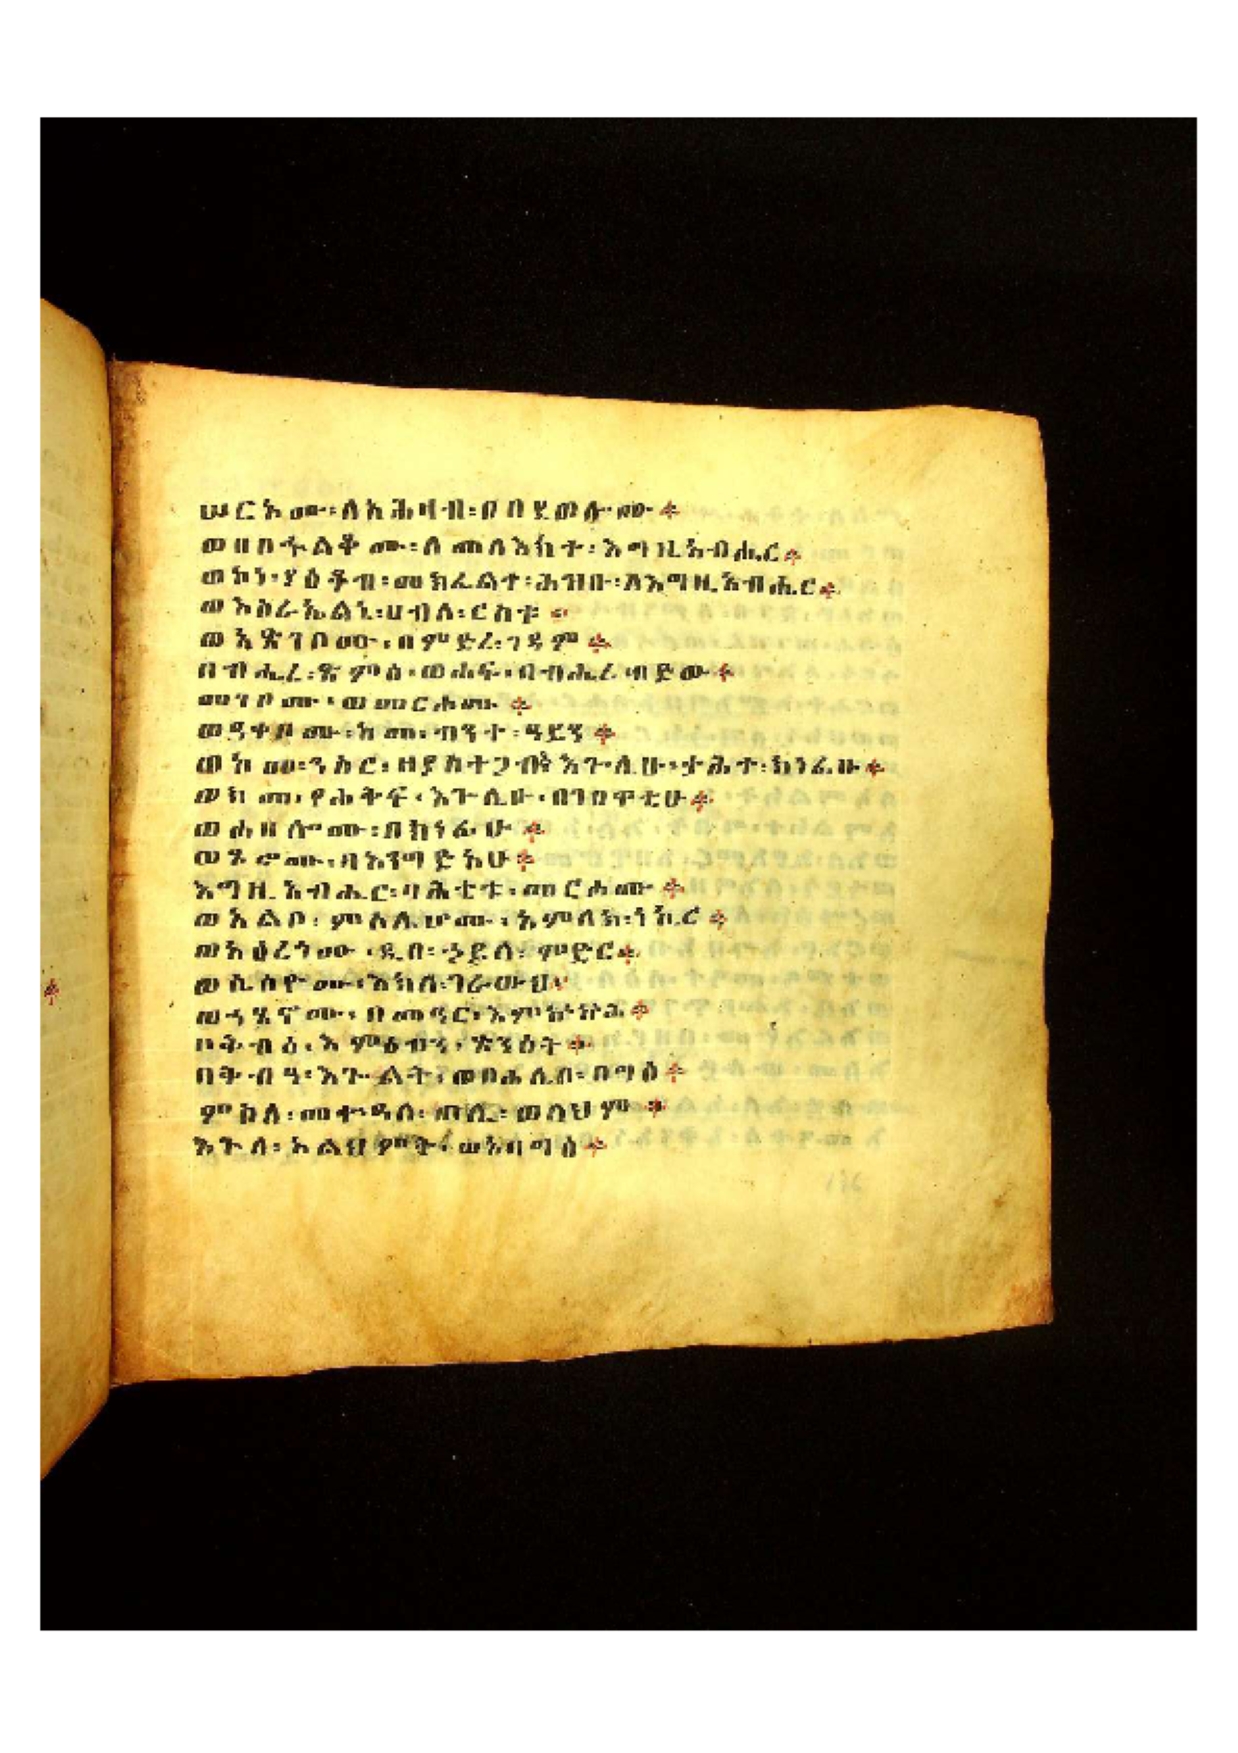 ሠርአሙ፡ለአሕዛብ፡በበደወሎሙ።
ወበበኍልቆሙ፡ለመላእክተ፡እግዚአብሔር።
ወኮነ፡ያዕቆብ፡መክፈልተ፡ሕዝቡ፡ለእግዚአብሔር።
ወእስራኤልኒ፡ሀብለ፡ርስቱ።
ወአጽገቦሙ፡በምድረ፡ገዳም።
በብሔረ፡ጽምዕ፡ወሐፍ፡በብሔረ፡በድው።
መገቦሙ፡ወመርሖሙ።
ወዓቀቦሙ፡ከመ፡ብንተ፡ዓይን።
ወከመ፡ንስር፡ዘያስተጋብእ፡እጕሊሁ፡ታሕተ፡ክነፊሁ።
ወከመ፡የሐቅፍ፡እጕሊሁ፡በገበዋቲሁ።
ወሐዘሎሙ፡በክነፊሁ።
ወጾሮሙ፡በእንግድአሁ።
እግዚአብሔር፡ባሕቲቱ፡መርሖሙ።
ወአልቦ፡ምስሌሆሙ፡አምላክ፡ነኪር።
ወአዕረጎሙ፡ዲበ፡ኃይለ፡ምድር።
ወሴሰዮሙ፡እክለ፡ገራውህ።
ወኀፄኖሙ፡በመዓር፡እምኰኵሕ።
ወቅብዕ፡እምዕብን፡ጽንዕት።
በቅብዓ፡እጐልት፡ወበሐሊበ፡በግዕ።
ምስለ፡መቍዓለ፡ጠሊ፡ወላህም።
እጕለ፡አልህምት፡ወአባግዕ።